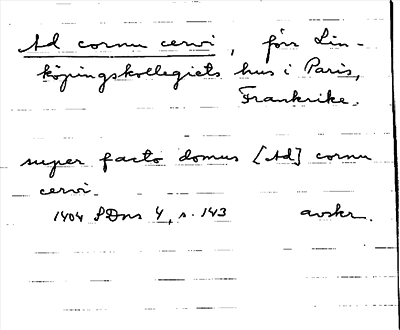 Ad cornu cervi, förr Lin-
köpingskollegiets hus i Paris,
Frankrike.
super facto domus [Ad] cornu
cervi.
1404 SDns 4, s. 143 avskr.